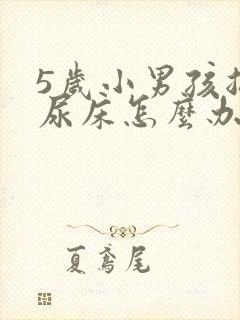 5歲小男孩
尿床怎麼办
夏鸢尾